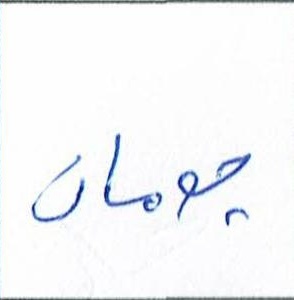 جومان